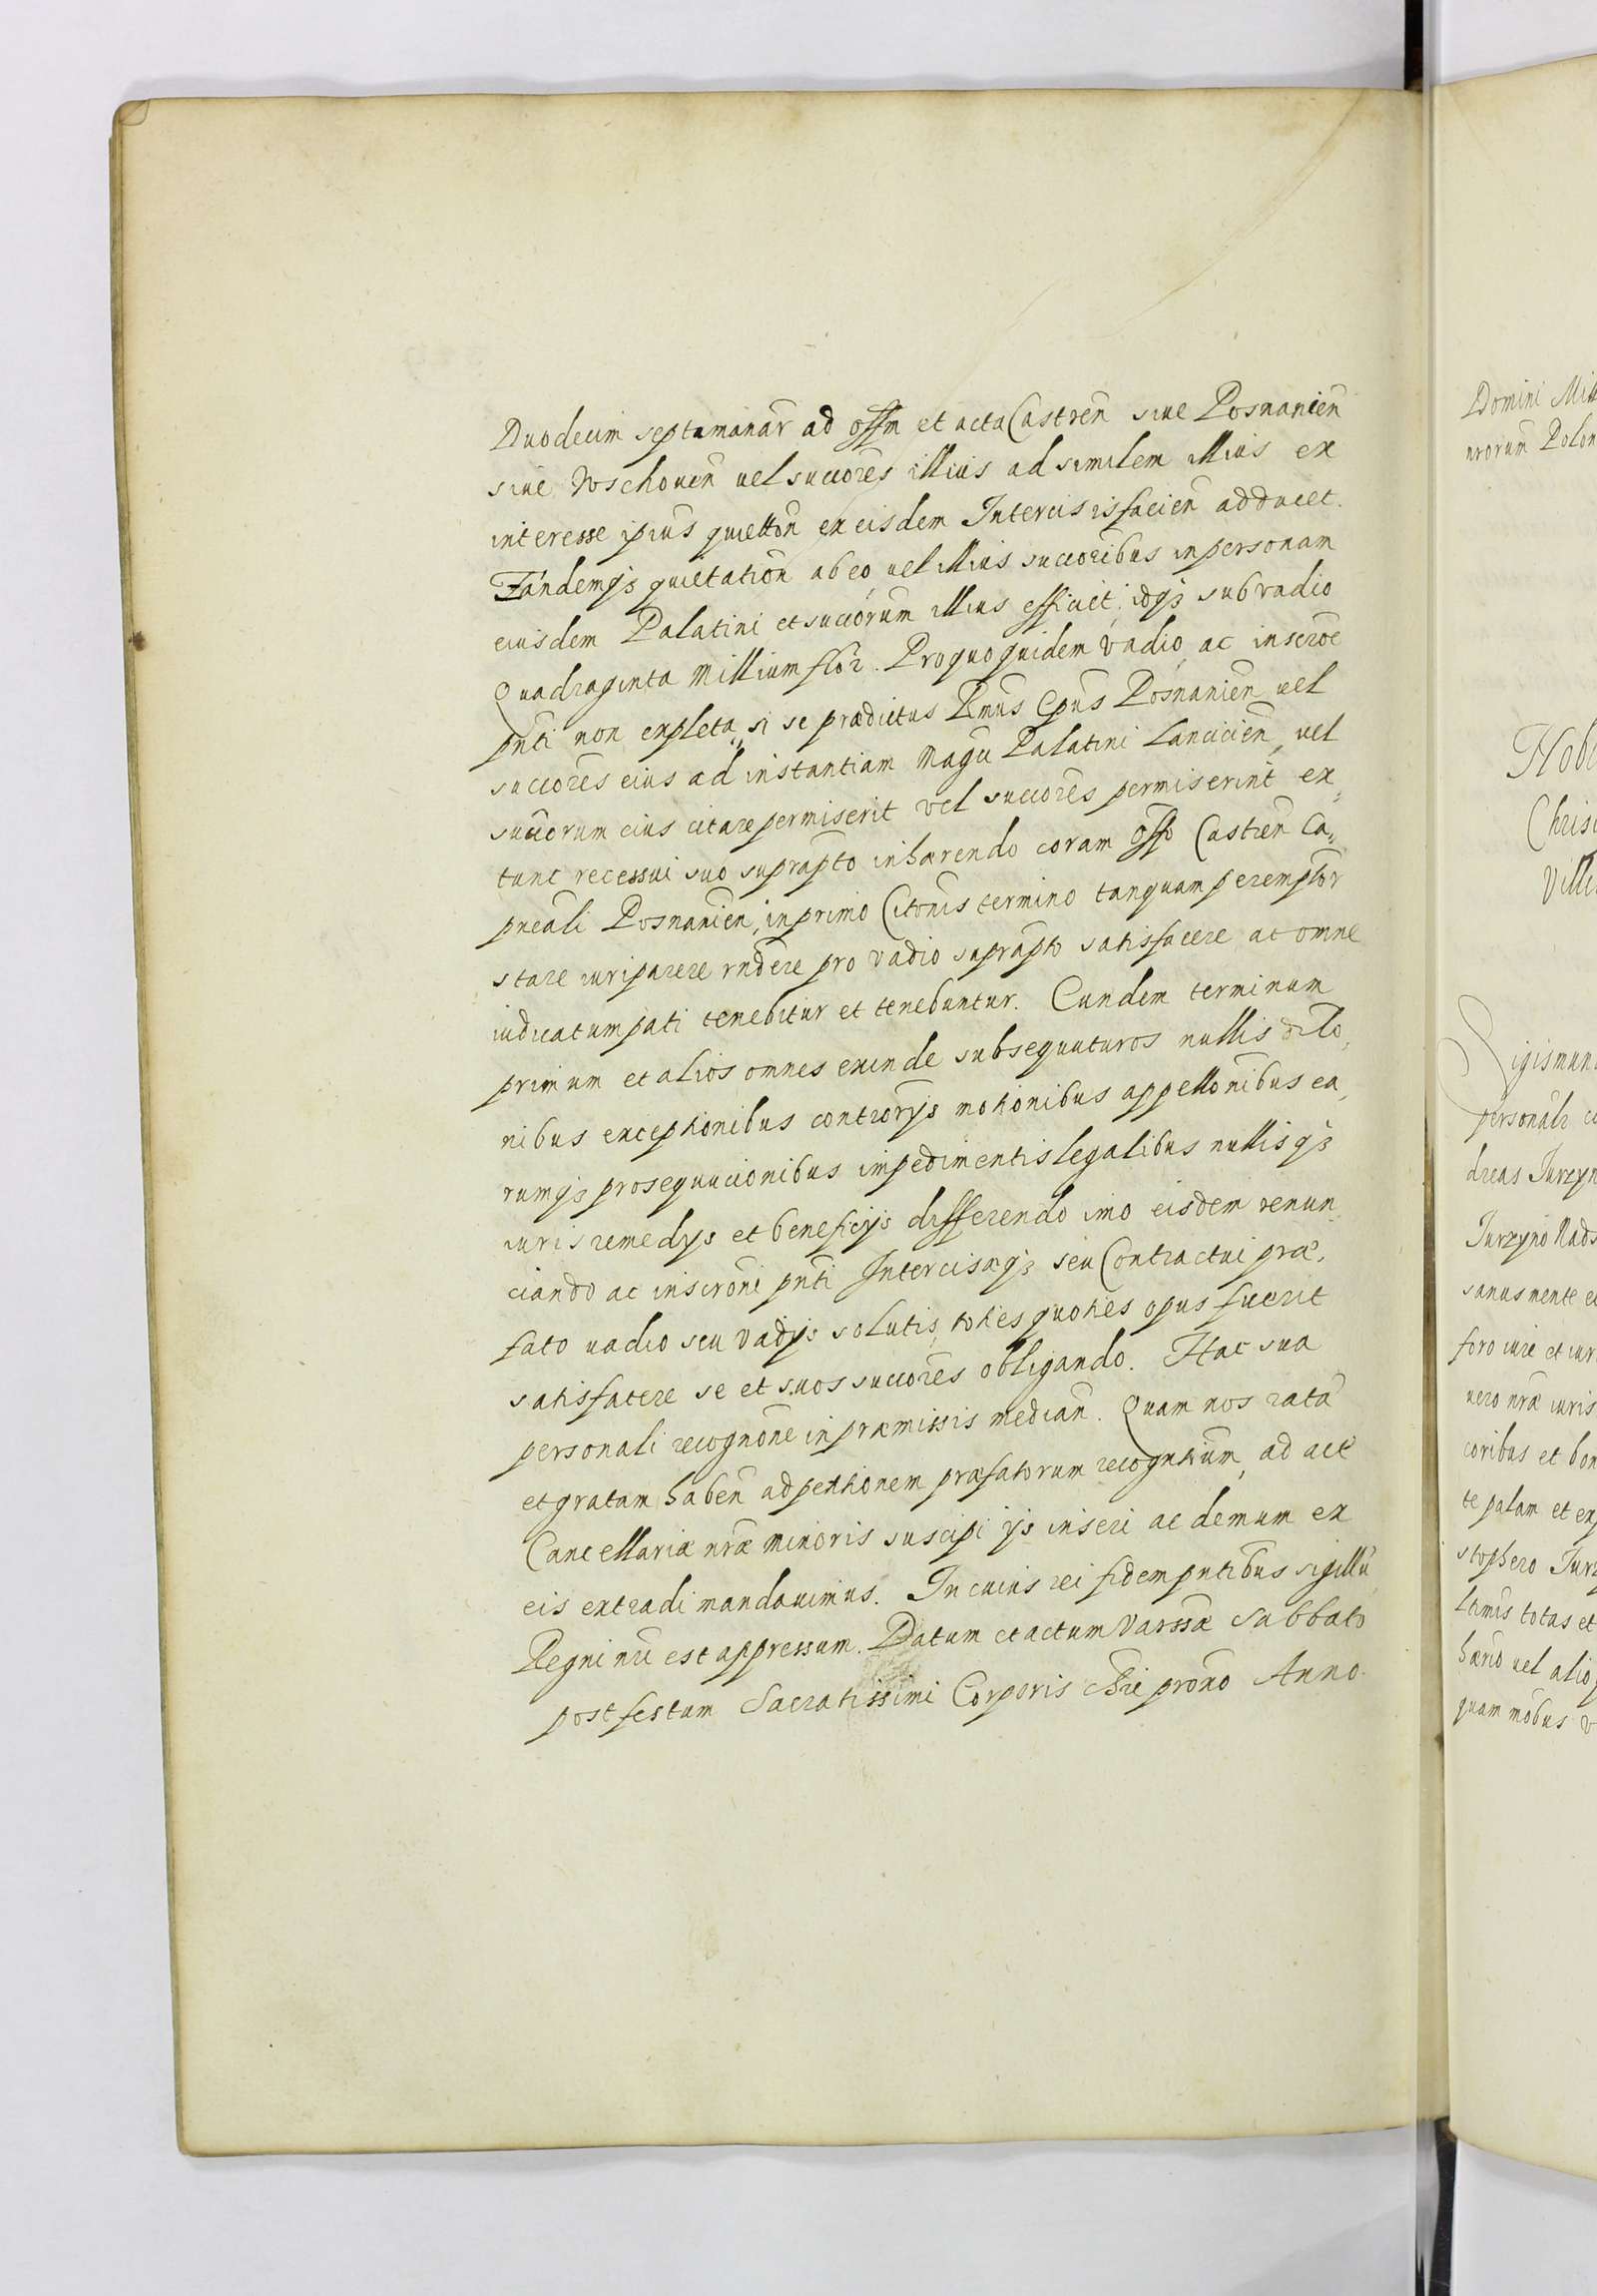 Duodecim septimanar̃ ad offm et acta Castreñ siue Posnanieñ
siue Wschoueñ uel succores̃ illius ad similem illius ex
interesse ipius quiettoñ ex eisdem Intercis isfacieñ adducet.
Tandemqȝ quietatioñ ab eo uel illius succoribus in personam
eiusdem Palatini et succorum illius efficiet, idqȝ sub vadio
Quadraginta Millium flor̃. Pro quo quidem Vadio ac inscroẽ
pñti non expleta, si se prædictus Rmus Epus Posnanieñ uel
succores eius ad instantiam Magci Palatini Lancicieñ, uel
succorum eius citare permiserit vel succores permiserint ex
tunc recessui suo suprapto inhærendo coram offo Castreñ Ca„
pneali Posnanieñ, in primo Citonis termino tanquam peremptor̃
stare iuri parere rndere pro vadio suprapto satisfacere ac omne
iudicatum pati tenebitur et tenebuntur. Eundem terminum
primum et alios omnes exinde subsequuturos nullis dilo„
nibus exceptionibus controrys motionibus appellonibus ea„
rumqȝ prosequucionibus impedimentis legalibus nullisqȝ
iuris remedys et beneficijs differendo imo eisdem renun„
ciando ac inscroni pñti Intercisæqȝ seu Contractui præ„
fato uadio seu vadijs solutis, toties quoties opus fuerit
satisfacere se et suos succores obligando. Hac sua
personali recognone in præmissis mediañ. Quam nos ratã
et gratam habeñ ad petitionem præfatorum recogntium, ad actã
Cancellariæ nræ Minoris suscipi ijs inseri ac demum ex
eis extradi mandauimus. In cuius rei fidem pntibus sigillũ
Regni nri est appressum. Datum et actum Varssæ Sabbato
post festum Sacratissimi Corporis Chri prono Anno.
Domini Mill
nrorum Polon
Nobi
Chris
Ville
Sigismun
personalr co
dreas Jurzyn
Jurzyno Nads
sanus mente et
foro iure et iur
uero nræ iuris
coribus et bon
te palam et exp
stophero Jurz
ltimis totas et
hærio uel alio
quam mobus v